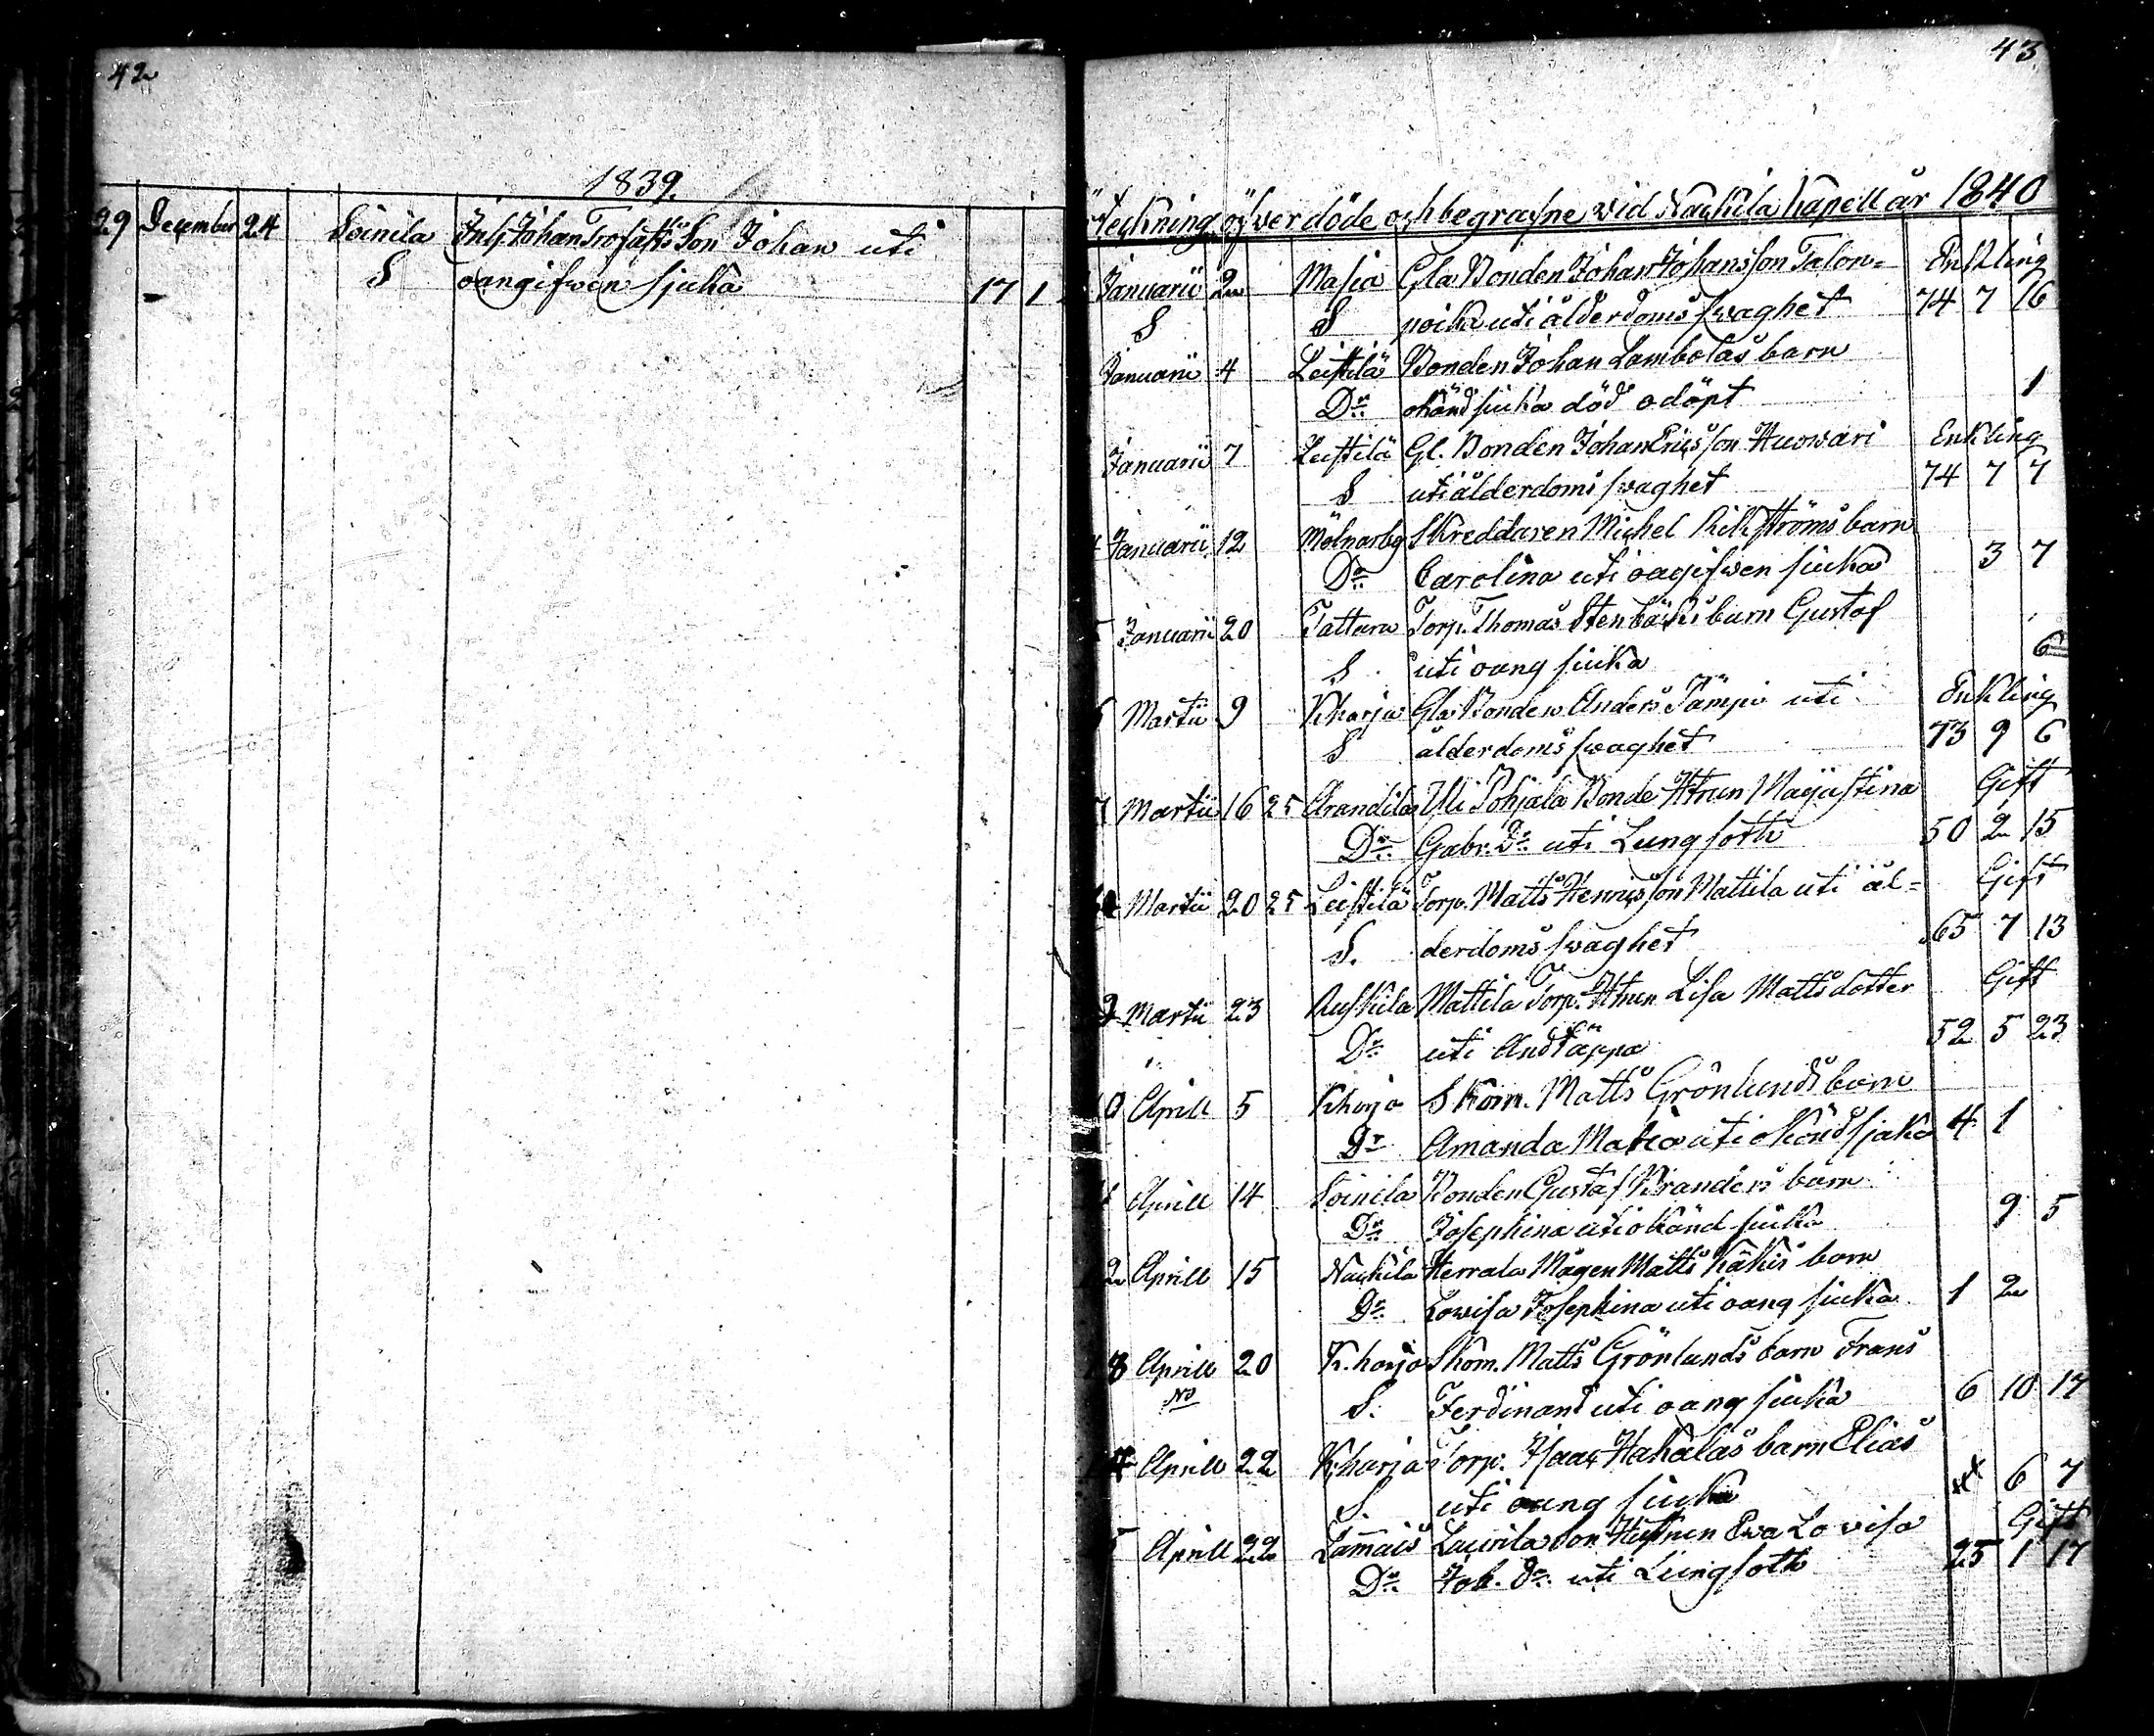 42
1839.
29 December 24 Soinila Inh. Johan Trofasts Son Johan uti
S oangifwen sjuka 17 1
43
teckning öfwer döde och begrafne wid Nackila Kapell år 1840
Januarii 2 Masia Gla Bonden Johan Johansson Talon= Enkling
S S poika uti ålderdoms swaghet 74 7 16
Januarii 4 Leistilä Bonden Johan Lambolas barn
Dr okänd sjuka död odöpt 1
Januarii 7 Leistilä Gl. Bonden Johan Ericsson Huowari Enkling
S uti ålderdoms swaghet 74 7 7
4 Januarii 12 Mölnarbg Skreddaren Michel Rikströms barn
Dr Carolina uti oagifwen sjuka 3 7
5 Januarii 20 Tattara Torp. Thomas Stenbäcks barn Gustaf
S uti oang sjuka 6
6 Martii 9 Kharja Gla Bonden Anders Tämpi uti Enkling
S ålderdoms swaghet 73 9 6
7 Martii 16 25 Arandila Yli Pohjala Bonde Htrun Majastina Gift
Dr Gabr. Dr uti Lungsoth 50 2 15
Martii 20 25 Leistilä Torp. Matts Henricsson Mattila uti ål= Gift
S. derdoms swaghet 65 7 13
9 Martii 23 Ruskila Mattila Torp. Htrun Lisa Mattsdotter Gift
Dr uti Andtäppa 52 5 23
10 Aprill 5 Kharja Skom. Matts Grönlunds barn
Dr Amanda Maria uti okänd sjuka 4 1
11 Aprill 14 Soinila Bonden Gustaf Branders barn
Dr Josephina uti okänd sjuka 9 5
12 Aprill 15 Nackila Herrala Mågen Matts Käkis barn
Dr Lowisa Josephina uti oang sjuka 1 2
13 Aprill 20 K.harja Skom. Matts Grönlunds barn Frans
No S. Ferdinand uti oang sjuka 6 10 17
14 Aprill 22 Kharja Torp. Isaac Hakalas barn Elias
S. uti oang sjuka 6 7
5 Aprill 22 Lammais Laurila Son Hustrun Ewa Lovisa Gift
Dr Joh. Dr uti Lungsoth 25 1 17